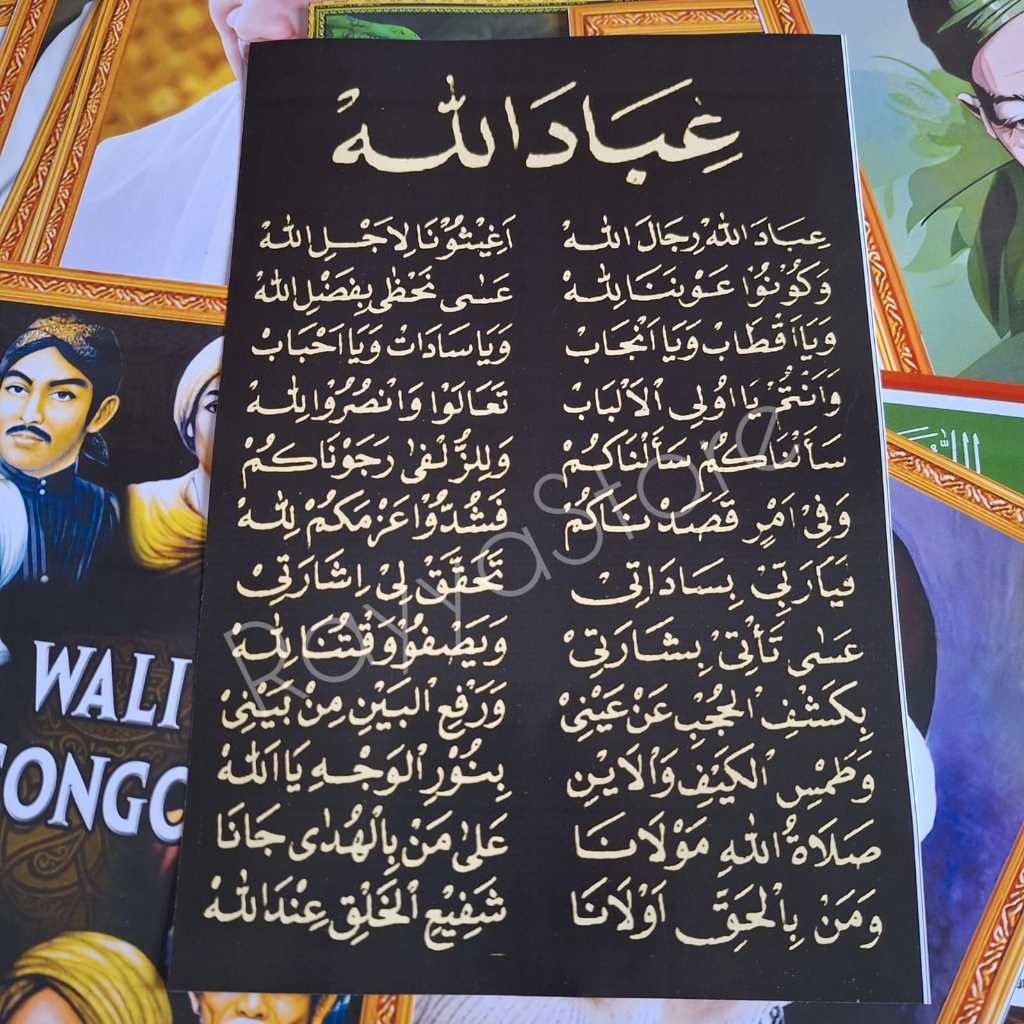 عِبَادَ اللهْ
عِبَادَ اللهْ رِجَالَ اللهْ اَغِيْثُوْنَا لِاَجْلِ اللهْ
وَكُوْنُوْا عَوْنَنَا لِلهْ عَسٰى نَحْظٰى بِفَضْلِ اللهْ
وَيَا اَقْطَابْ وَيَا اَنْجَابْ وَيَا سَادَاتْ وَيَا اَحْبَابْ
وَاَنْتُمْ يَا اُولِى الْاَلْبَابْ تَعَالَوْا وَانْصُرُوْا لِلهْ
سَأَلْنَاكُمْ سَأَلْنَاكُمْ وَلِلزُّلْفٰى رَجَوْنَاكُمْ
وَفِيْ اَمْرٍ قَصَدْنَاكُمْ فَشُدُّوْا عَزْمَكُمْ لِلهْ
فَيَارَبِّيْ بِسَادَاتِيْ تَحَقَّقْ لِيْ اِشَارَتِيْ
عَسٰى تَأْتِيْ بِشَارَتِيْ وَيَصْفُوْ وَقْتُنَا لِلهْ
بِكَشْفِ الْحُجْبِ عَنْ عَيْنِيْ وَرَفْعِ الْبَيْنِ مِنْ بَيْنِيْ
وَطَمْسِ الْكَيْفِ وَالْاَيْنِ بِنُوْرِ الْوَجْهِ يَا اَللهْ
صَلَاةُ اللهِ مَوْلَانَا عَلٰى مَنْ بِالْهُدٰى جَانَا
وَمَنْ بِالْحَقِّ اَوْلَانَا شَفِيْعِ الْخَلْقِ عِنْدَ اللهْ
RayyaStore
WALI
SONGO